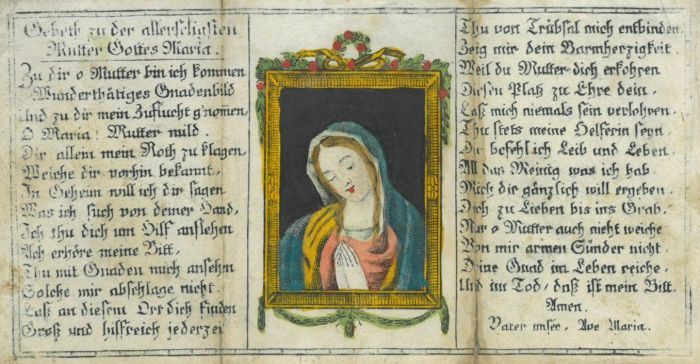 Gebeth zu der allerseligsten
Mutter Gottes Maria.
Zu dir o Mutter bin ich kommen
Wunderthätiges Gnadenbild
Und zu dir mein Zuflucht g'nom̄en,
O Maria! Mutter mild.
Dir allein mein Noth zu klagen,
Welche dir vorhin bekannt,
In Geheim will ich dir sagen
Was ich such von deiner Hand,
Ich thu dich um Hilf anflehen
Ach erhöre meine Bitt,
Thu mit Gnaden mich ansehn
Solche mir abschlage nicht.
Laß an diesem Ort dich finden
Groß und hilfreich jederzei
Thu von Trübsal mich entbinden
Zeig mir dein Barmherzigkeit.
Weil du Mutter dich erkohren
Diesen Platz zu Ehre dein,
Laß mich niemals sein verlohren,
Thu stets meine Helferin seyn.
Dir befehl ich Leib und Leben,
All das Meinig was ich hab
Mich dir gänzlich will ergeben
Dich zu Lieben bis ins Grab.
Nur o Mutter auch nicht weiche
Von mir armen Sünder nicht.
Deine Gnad im Leben reiche,
Und im Tod, daß ist mein Bitt.
Amen.
Vater unser. Ave Maria.